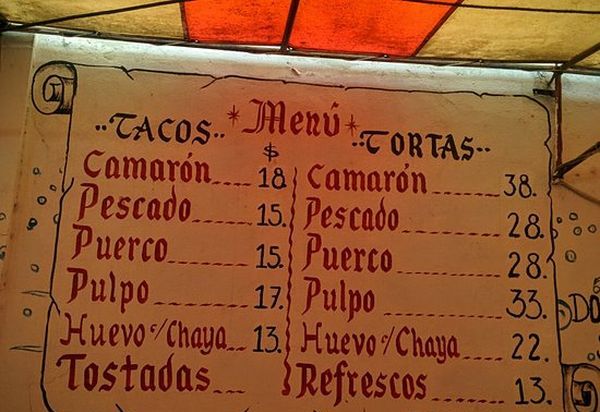 *Menú*
..TACOS..
$
Camarón.... 18.
Pescado...... 15.
Puerco....... 15.
Pulpo........ 17.
Huevo c/Chaya... 13.
Tostadas....
..TORTAS..
Camarón...... 38.
Pescado........ 28.
Puerco......... 28.
Pulpo.......... 33.
Huevo c/Chaya.... 22.
Refrescos..... 13.
DO